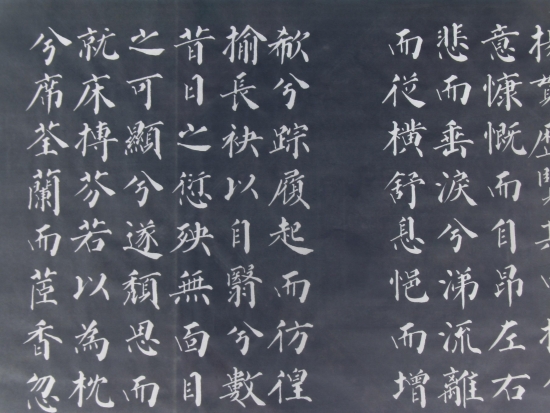 貫歷覽其中
意慷慨而自昂左右
悲而垂淚兮涕流離
而從橫舒息悒而增
欷兮踪履起而彷徨
揄長袂以自翳兮數
昔日之愆殃無面目
之可顯兮遂頹思而
就床摶芬若以為枕
兮席荃蘭而茝香忽